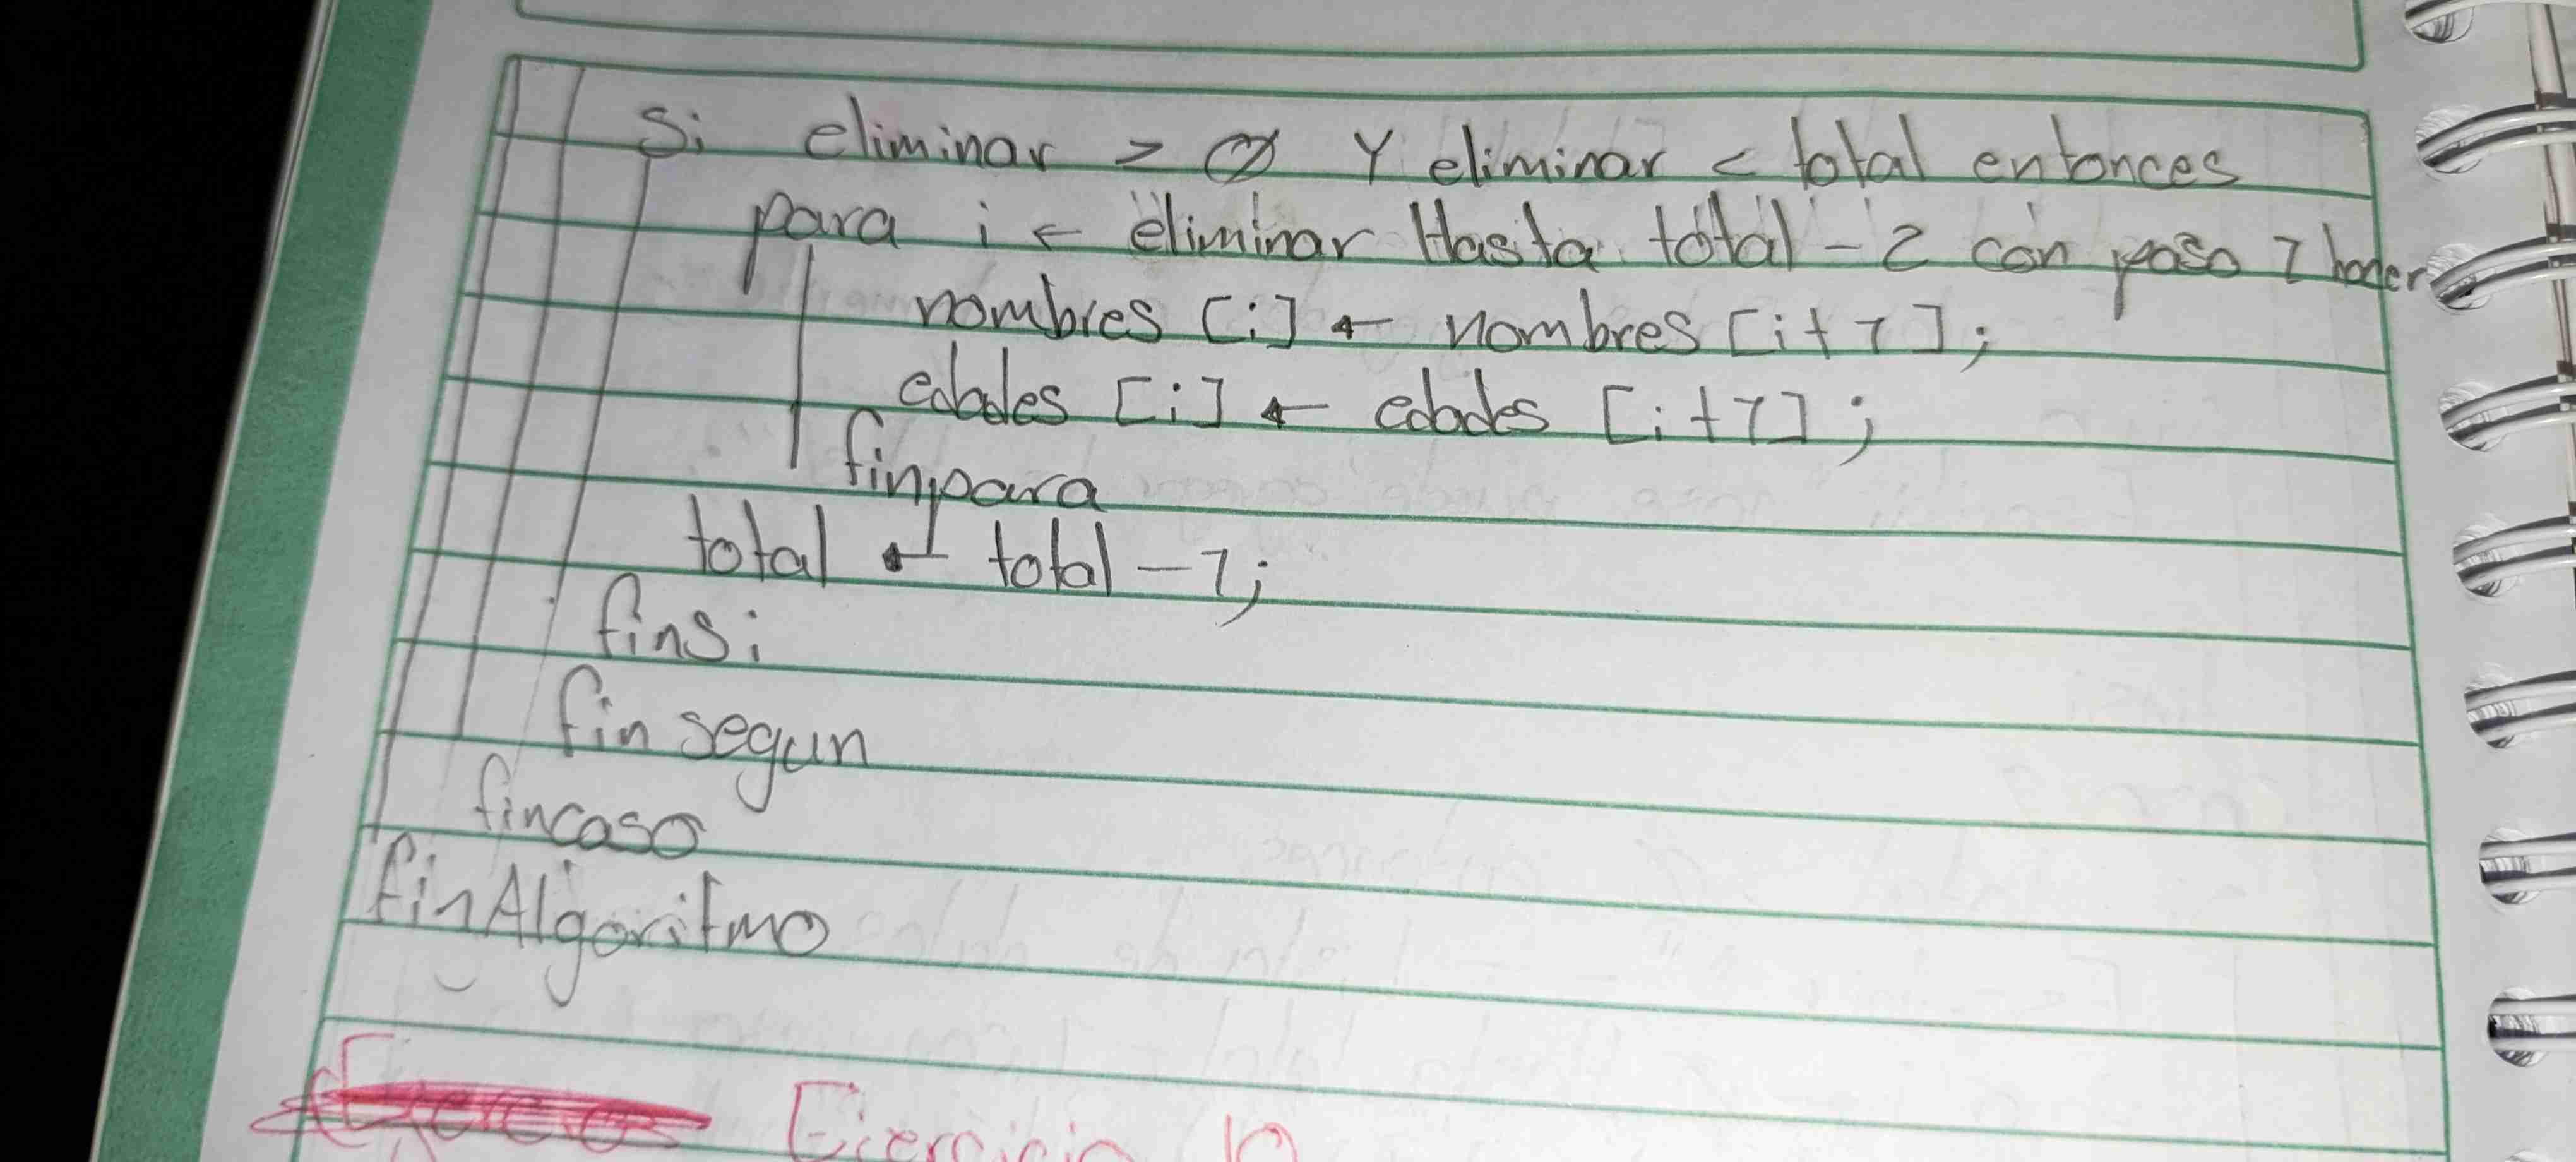 Si eliminar > Ø Y eliminar < total entonces
para i ← eliminar Hasta total - 2 con paso 1 hacer
nombres [i] ← nombres [i+1];
edades [i] ← edades [i+1];
finpara
total ← total - 1;
finsi
fin segun
fincaso
finAlgoritmo
Ejercicio 10